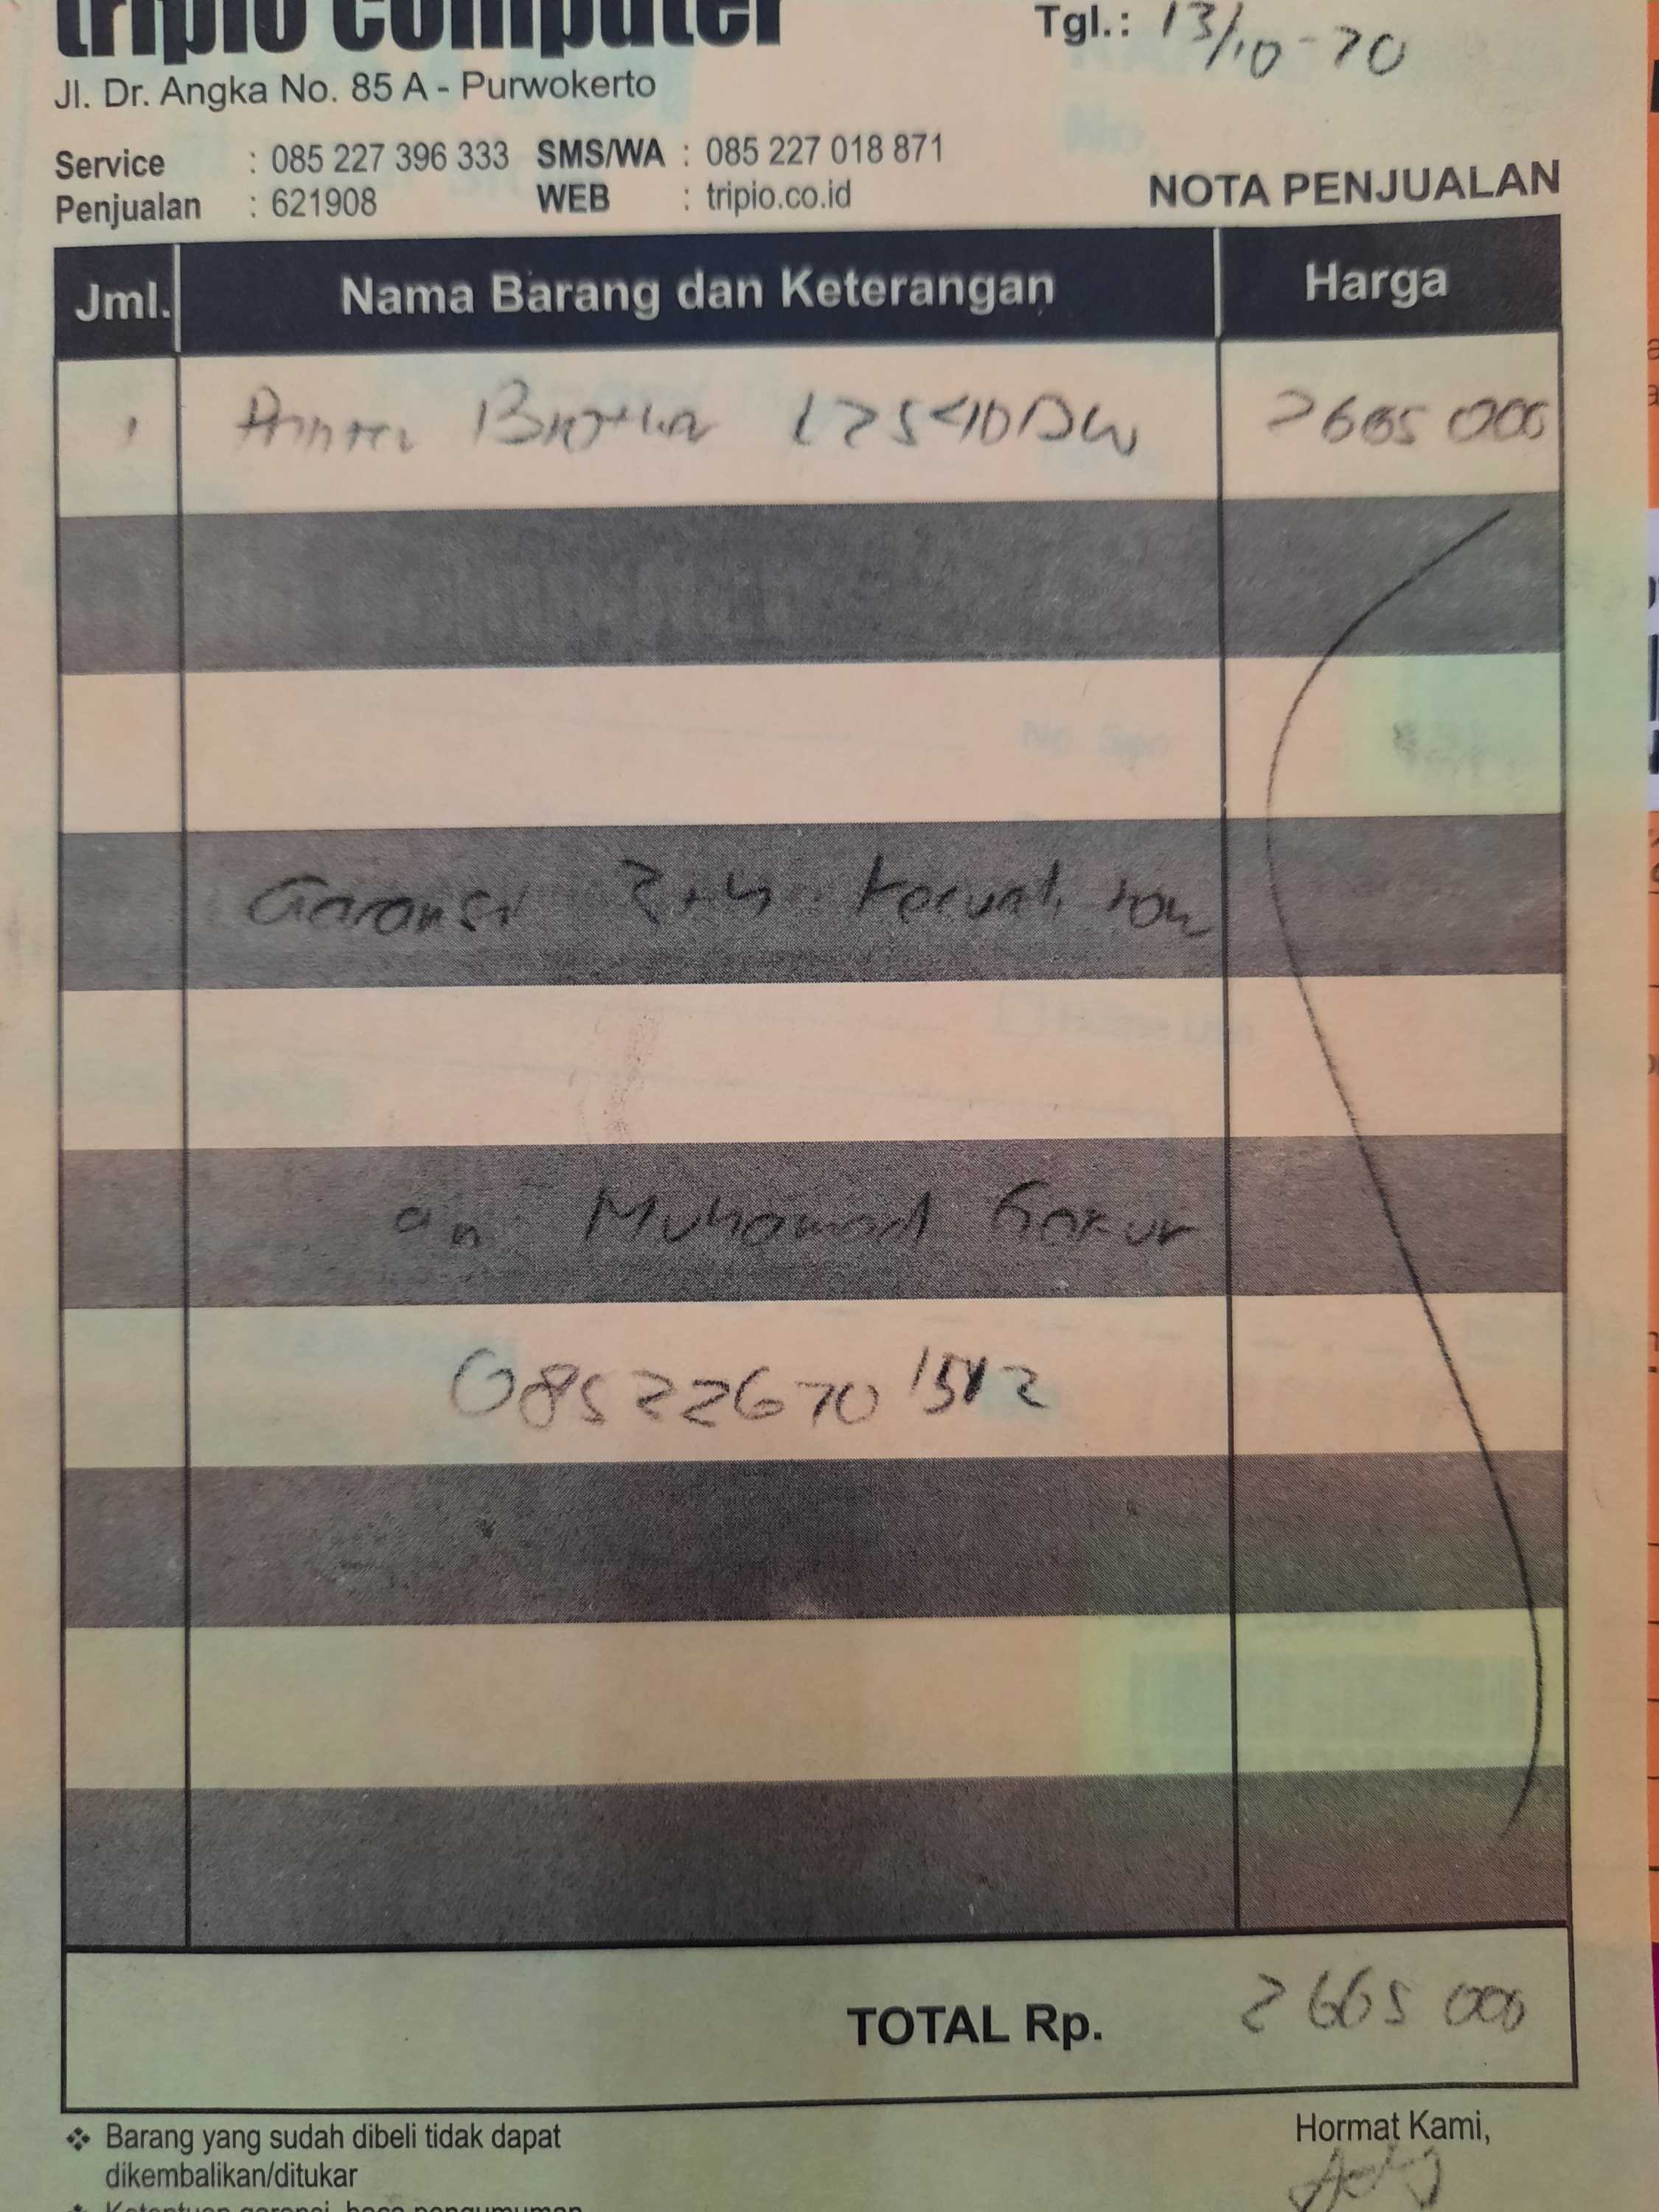 tripio computer
Tgl.: 13/10-20
Jl. Dr. Angka No. 85 A - Purwokerto
Service : 085 227 396 333 SMS/WA : 085 227 018 871
Penjualan : 621908 WEB : tripio.co.id
NOTA PENJUALAN
Jml. Nama Barang dan Keterangan Harga
1 Printer Brother L2540DW 2665 000
Garansi 3 th kecuali
an Muhamad
TOTAL Rp. 2665 000
❖ Barang yang sudah dibeli tidak dapat
dikembalikan/ditukar
Hormat Kami,
❖ Ketentuan garansi, baca pengumuman